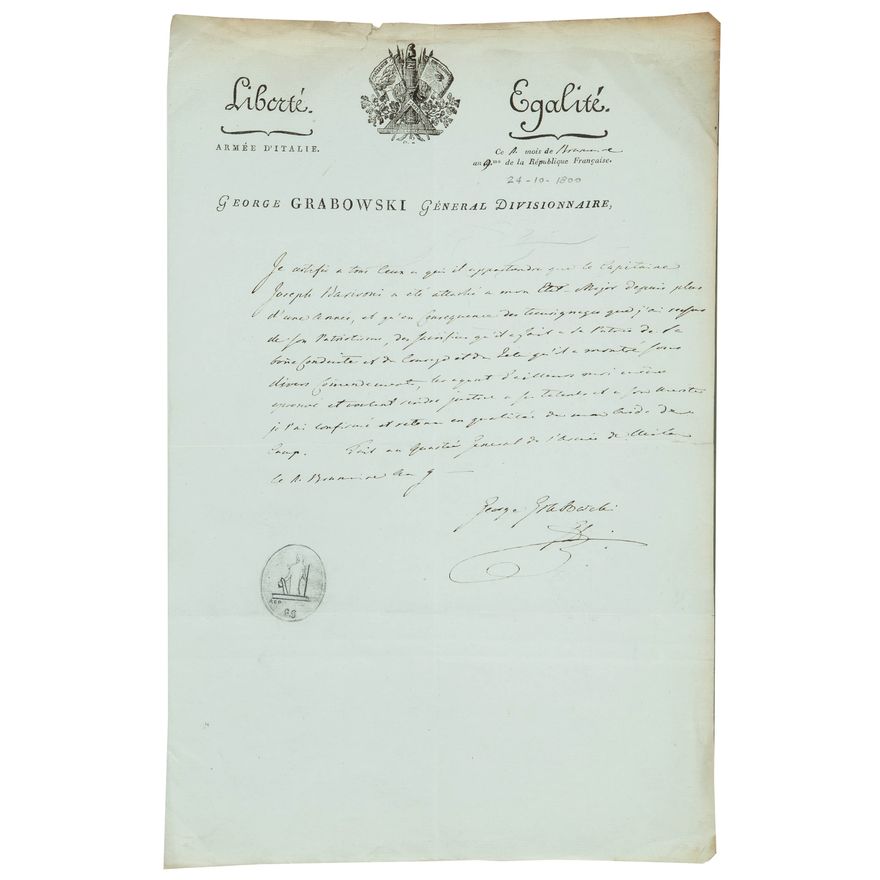 Liberté.
Egalité.
ARMÉE D'ITALIE.
Ce mois de Brumaire
an 9.me de la République Française.
24-10-1800
GEORGE GRABOWSKI GÉNERAL DIVISIONNAIRE,
Je certifie a tous Ceux a qui il appartendra que le Capitaine
Joseph a été attaché a mon Etat-Major depuis plus
d'une Année, et qu'en Consequence des que j'ai
de Son Patriotisme, des Sacrifices qu'il a fait a la Patrie de Sa
bone Conduite et du Courage et du Zele qu'il a montré sous
divers Comendements, d'ailleurs moi même
et voulant rendre justice a ses Talents et a Son
je l'ai confirmé et retenu en qualitée de mon Aide de
Camp. Fait au Quartié General de l'Armée de Milan
le Brumaire An 9
George Grabowski
G G